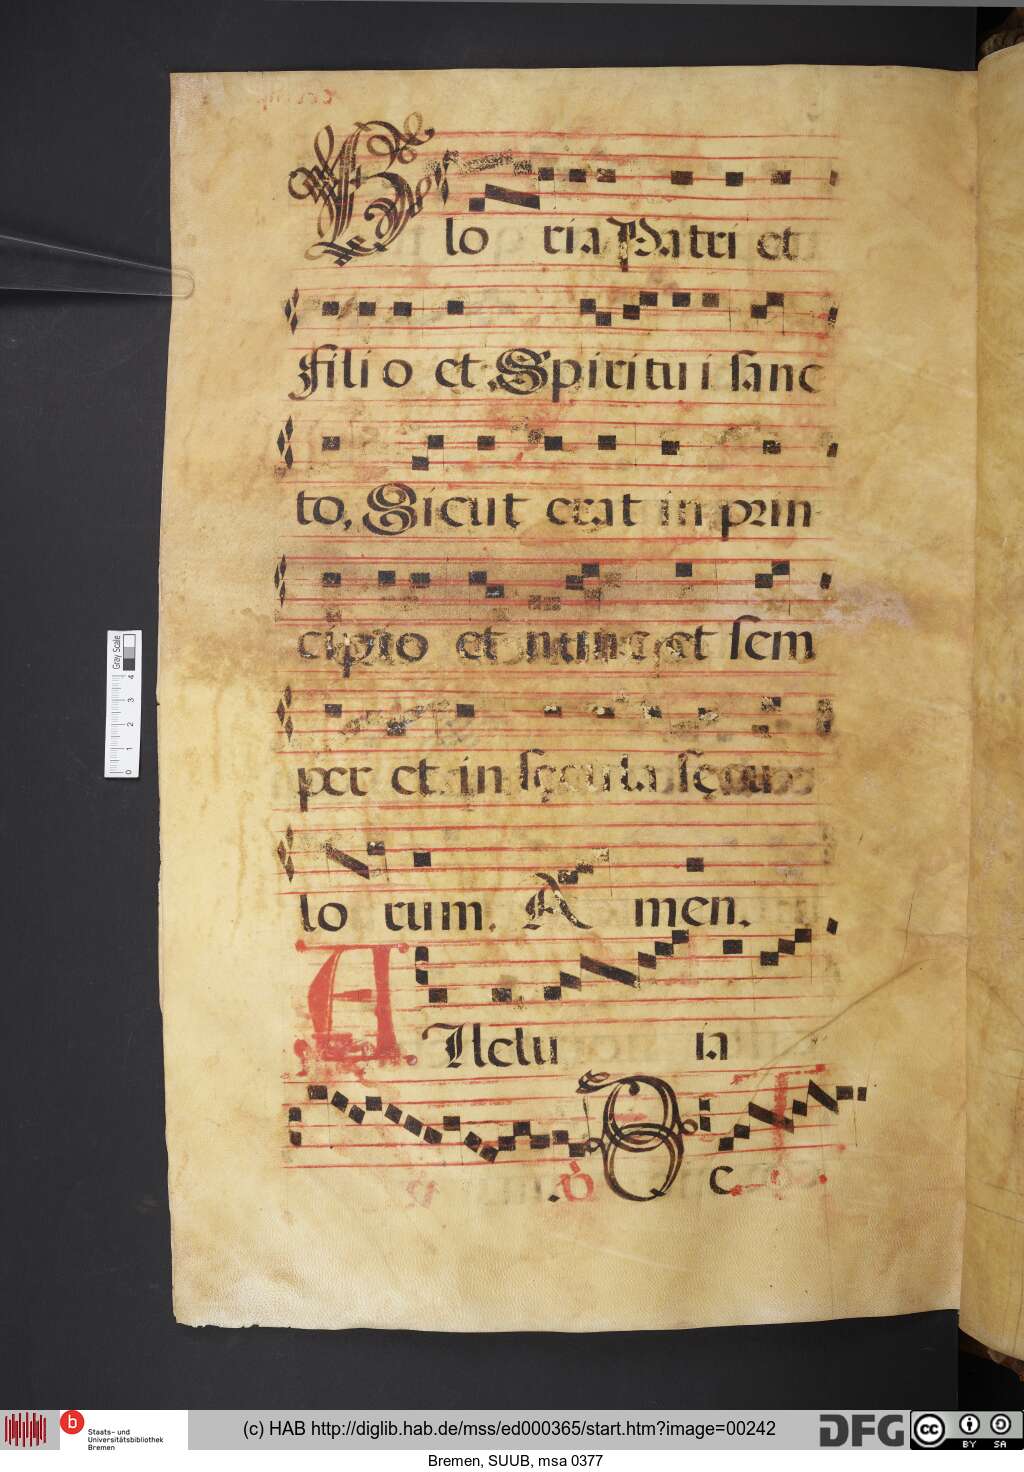 Glo ria Patri et
filio et Spiritui sanc
to, Sicut erat in prin
cipio et nunc et sem
per et in sęcula sęcu
lo rum. A men.
Allelu ia
℣. Ec
Gray Scale
0 1 2 3 4
b Staats- und
Universitätsbibliothek
Bremen
(c) HAB http://diglib.hab.de/mss/ed000365/start.htm?image=00242
DFG
cc BY SA
Bremen, SUUB, msa 0377